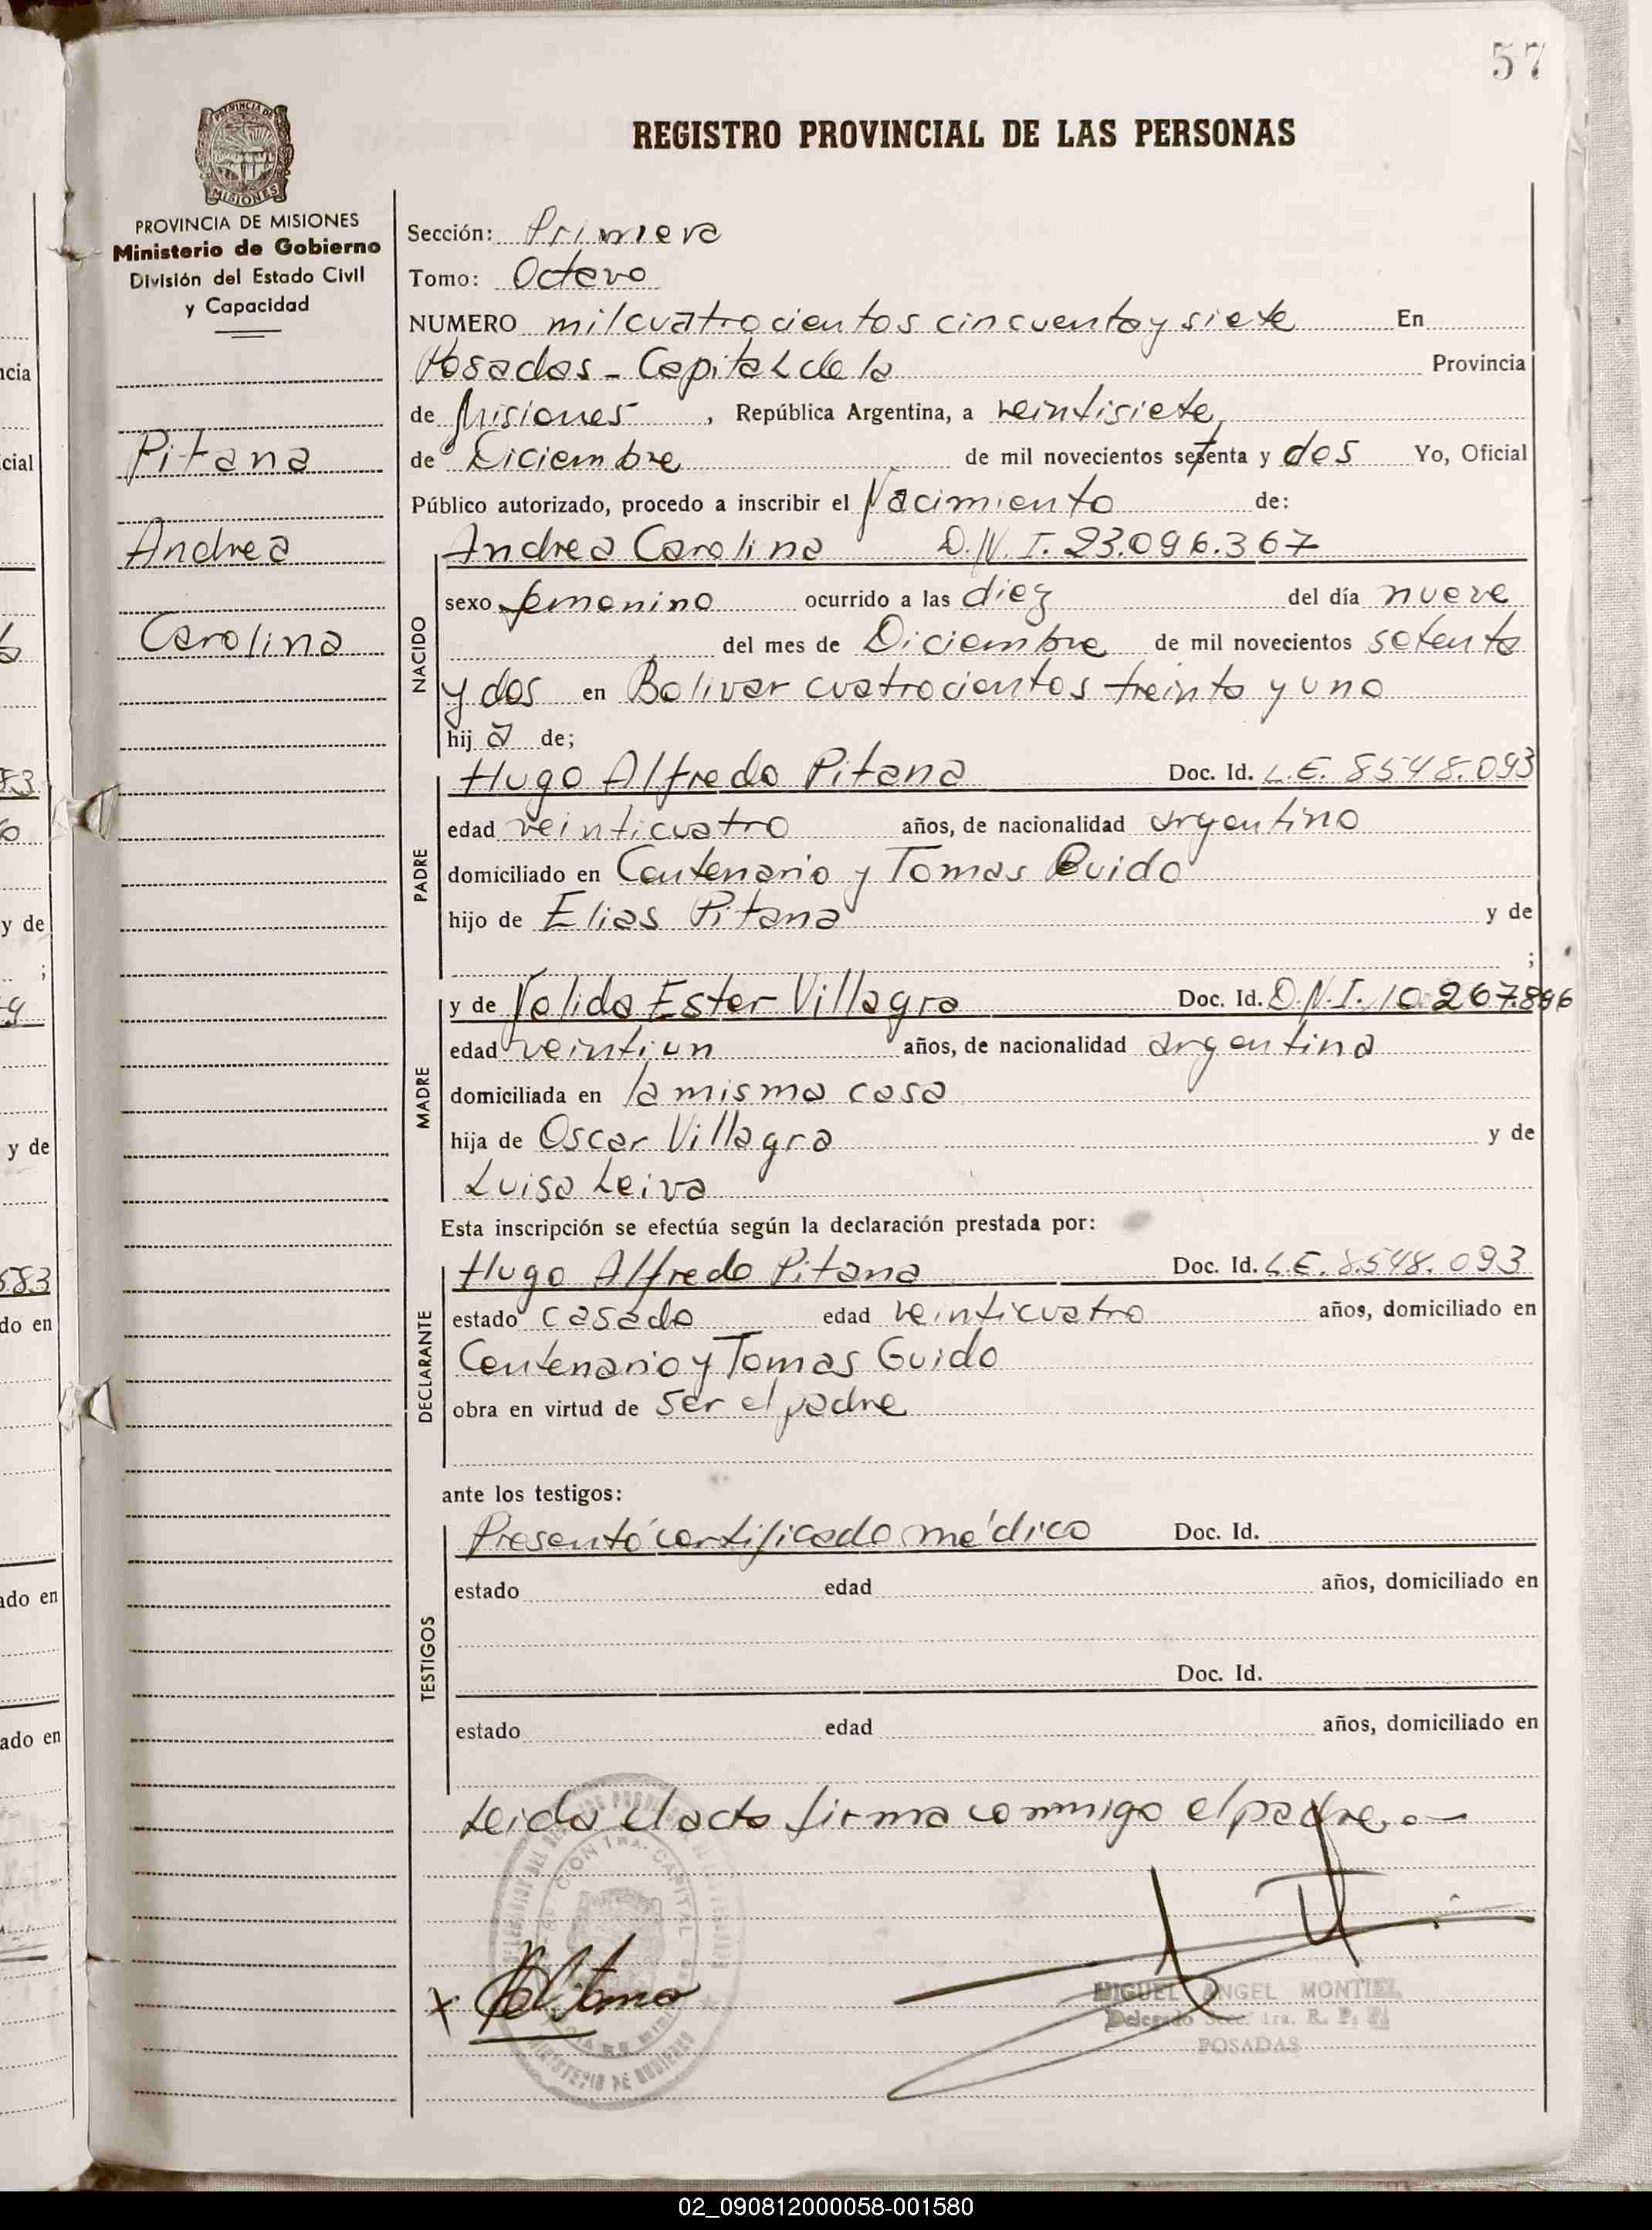 57
REGISTRO PROVINCIAL DE LAS PERSONAS
PROVINCIA DE MISIONES
Ministerio de Gobierno
División del Estado Civil
y Capacidad
Pitana
Andrea
Carolina
Sección: Primera
Tomo: Octavo
NUMERO mil cuatrocientos cincuenta y siete En
Posadas - Capital de la Provincia
de Misiones, República Argentina, a veintisiete
de Diciembre de mil novecientos setenta y dos Yo, Oficial
Público autorizado, procedo a inscribir el Nacimiento de:
NACIDO
Andrea Carolina D.N.I. 23.096.367
sexo femenino ocurrido a las diez del día nueve
del mes de Diciembre de mil novecientos setenta
y dos en Bolivar cuatrocientos treinta y uno
hij a de;
PADRE
Hugo Alfredo Pitana Doc. Id. L.E. 8548.093
edad veinticuatro años, de nacionalidad argentino
domiciliado en Centenario y Tomas Guido
hijo de Elias Pitana y de
;
MADRE
y de Velida Ester Villagra Doc. Id. D.N.I. 10.267.896
edad veintiun años, de nacionalidad argentina
domiciliada en la misma casa
hija de Oscar Villagra y de
Luisa Leiva
Esta inscripción se efectúa según la declaración prestada por:
DECLARANTE
Hugo Alfredo Pitana Doc. Id. L.E. 8.548.093
estado casado edad veinticuatro años, domiciliado en
Centenario y Tomas Guido
obra en virtud de ser el padre
ante los testigos:
TESTIGOS
Presentó certificado médico Doc. Id.
estado edad años, domiciliado en
Doc. Id.
estado edad años, domiciliado en
Leida el acta firma conmigo el padre.-
MIGUEL ANGEL MONTIEL
Delegado Secc. 1ra. R. P. P.
POSADAS
02_090812000058-001580